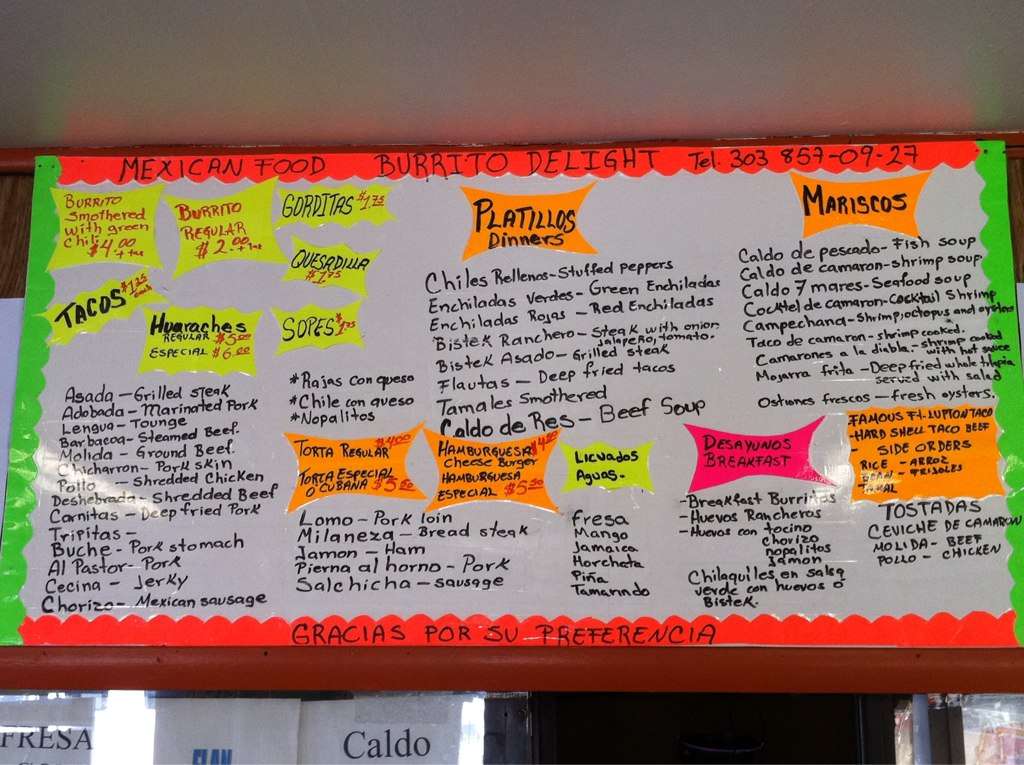 MEXICAN FOOD BURRITO DELIGHT Tel. 303 857-09-27
BURRITO
Smothered
with green
Chili
$4.00
+ tax
BURRITO
REGULAR
$2.00
+ tax
GORDITAS $1.75
QUESADILLA
$1.75
TACOS $1.25
each
Huaraches
REGULAR $5.00
ESPECIAL $6.00
SOPES $1.75
Asada - Grilled steak
Adobada - Marinated Pork
Lengua - Tounge
Barbacoa - Steamed Beef.
Molida - Ground Beef.
Chicharron - Pork skin
Pollo - Shredded Chicken
Deshebrada - Shredded Beef
Carnitas - Deep fried Pork
Tripitas -
Buche - Pork stomach
Al Pastor - Pork
Cecina - Jerky
Chorizo - Mexican sausage
*Rajas con queso
*Chile con queso
*Nopalitos
TORTA REGULAR $4.00
TORTA ESPECIAL
O CUBANA $5.50
HAMBURGUESA $4.50
Cheese Burger
HAMBURGUESA
ESPECIAL $5.50
Lomo - Pork loin
Milaneza - Bread steak
Jamon - Ham
Pierna al horno - Pork
Salchicha - sausage
PLATILLOS
Dinners
Chiles Rellenos - Stuffed peppers
Enchiladas Verdes - Green Enchiladas
Enchiladas Rojas - Red Enchiladas
Bistek Ranchero - Steak with onion
jalapeño, tomato.
Bistek Asado - Grilled steak
Flautas - Deep fried tacos
Tamales Smothered
Caldo de Res - Beef Soup
LICUADOS
AGUAS.
Fresa
Mango
Jamaica
Horcheta
Piña
Tamarindo
DESAYUNOS
BREAKFAST
-Breakfast Burritos
-Huevos Rancheros
-Huevos con tocino
chorizo
nopalitos
Jamon
Chilaquiles en salsa
verde con huevos o
Bistek.
MARISCOS
Caldo de pescado - Fish soup
Caldo de camaron - shrimp soup
Caldo 7 mares - Seafood soup
Cocktel de camaron - Cocktail Shrimp
Campechana - Shrimp, octopus and oyster
Taco de camaron - shrimp cooked.
Camarones a la diabla - shrimp cooked
with hot sauce
Mojarra frita - Deep fried whole tilapia
served with salad
Ostiones frescos - fresh oysters.
FAMOUS Ft. LUPTON TACO
-HARD SHELL TACO BEEF
- SIDE ORDERS
RICE - ARROZ
BEAN - FRIJOLES
TOSTADAS
CEVICHE DE CAMARON
MOLIDA - BEEF
POLLO - CHICKEN
GRACIAS POR SU PREFERENCIA
FRESA
FLAN
Caldo